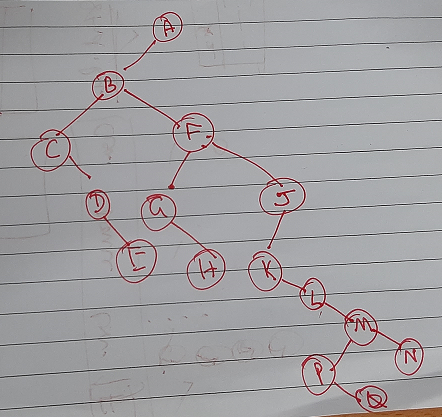 A
B
C F
D G J
E H K
L
M
P N
Q